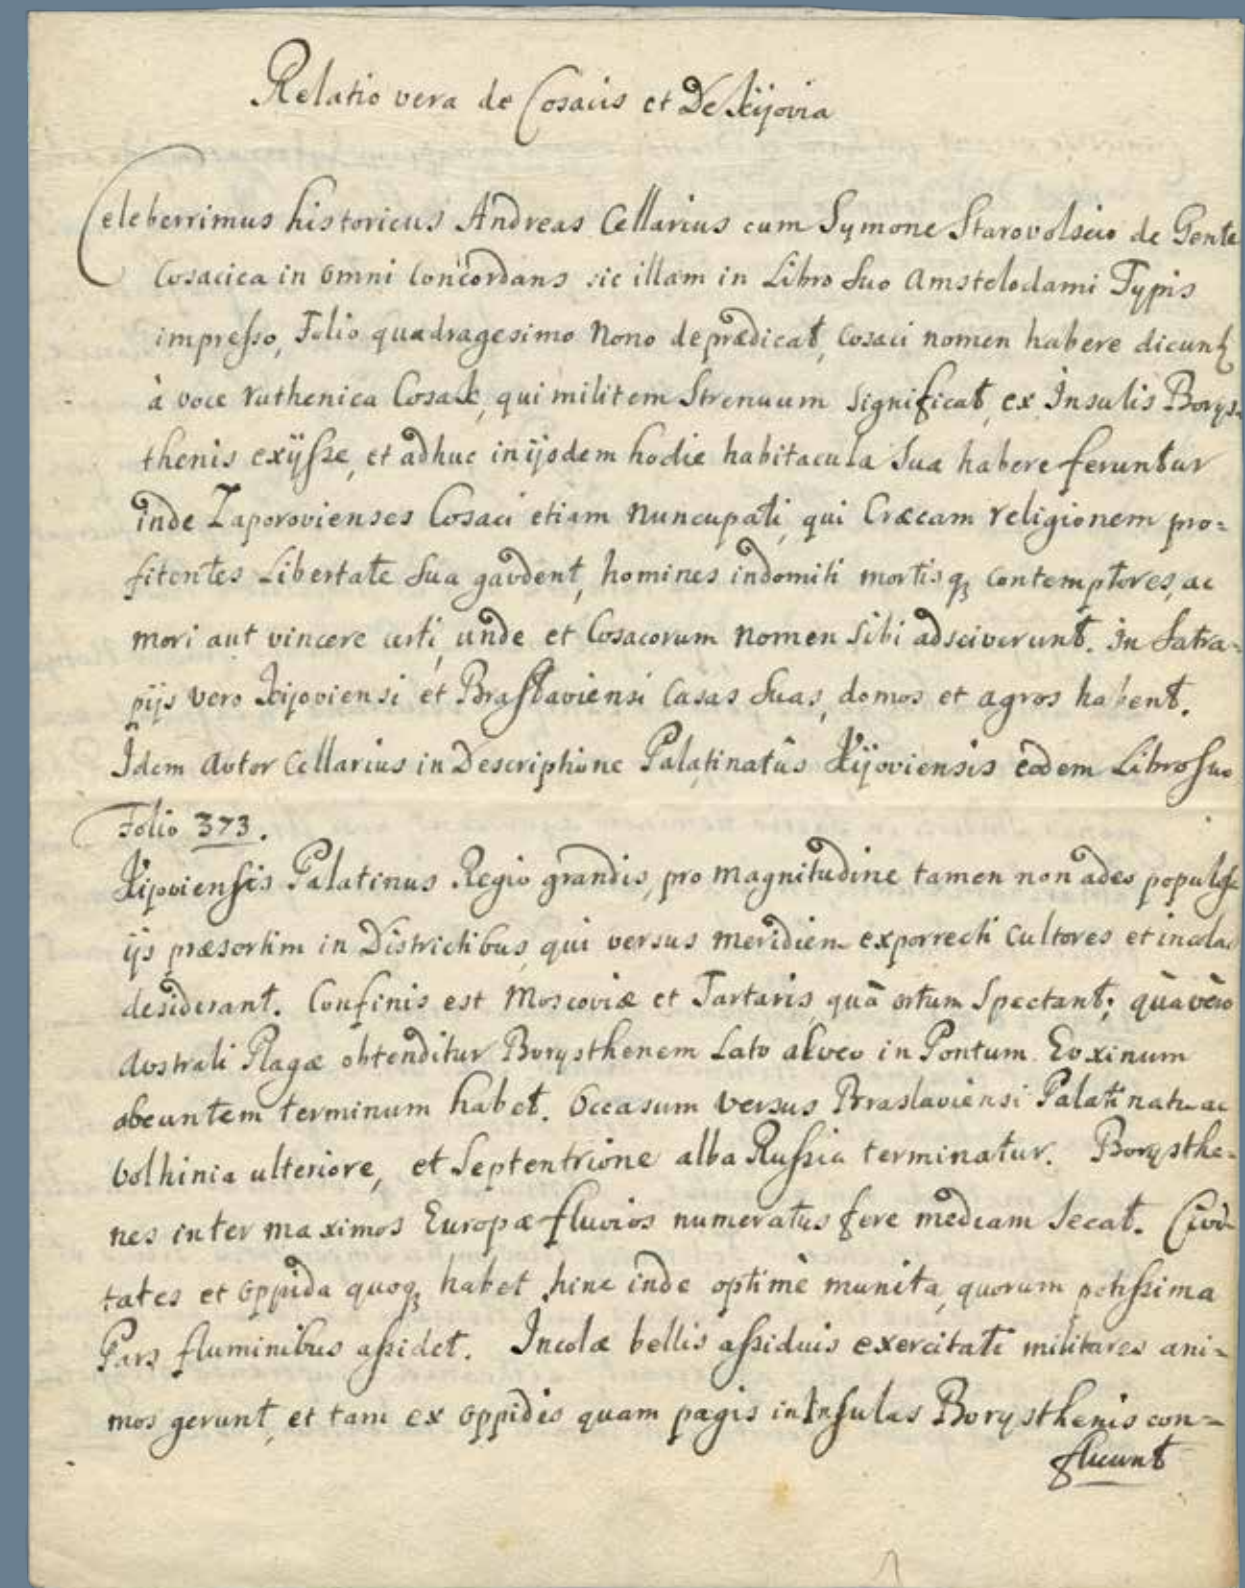 Relatio vera de Cosacis et De Kijovia
Celeberrimus historicus Andreas Cellarius cum Symone Starovolscio de Gente
Cosacica in omni concordans sic illam in Libro Suo Amstelodami Typis
impresso, Folio quadragesimo Nono deprædicat, Cosaci nomen habere dicunt
à voce ruthenica Cosak, qui militem Strenuum Significat, ex Insulis Borys-
thenis exijsse, et adhuc in ijsdem hodie habitacula Sua habere feruntur
inde Zaporovienses Cosaci etiam Nuncupati, qui Græcam religionem pro=
fitentes Libertate Sua gaudent, homines indomiti mortisq; contemptores, ac
mori aut vincere certi, unde et Cosacorum Nomen Sibi adsciverunt. In Satra=
pijs vero Kijoviensi et Braslaviensi Casas Suas, domos et agros habent.
Idem Autor Cellarius in Descriptione Palatinatûs Kijoviensis eodem Libro Suo
Folio 373.
Kijoviensis Palatinus Regio grandis, pro magnitudine tamen non adeo populosa
ijs præsertim in Districtibus, qui versus meridiem exporrecti Cultores et incolas
desiderant. Confinis est Moscoviæ et Tartaris, quâ ortum Spectant; quà vero
Australi Plagæ obtenditur Borysthenem Lato alveo in Pontum Euxinum
abeuntem terminum habet. Occasum versus Braslaviensi Palatinatu ac
Volhinia ulteriore, et Septentrione alba Russia terminatur. Borysthe=
nes inter maximos Europæ fluvios numeratus fere mediam Secat. Civi-
tates et oppida quoq; habet hinc inde optimè munita, quorum potissima
Pars fluminibus assidet. Incolæ bellis assiduis exercitati militares ani=
mos gerunt, et tam ex oppidis quam pagis in Insulas Borysthenis con=
fluunt